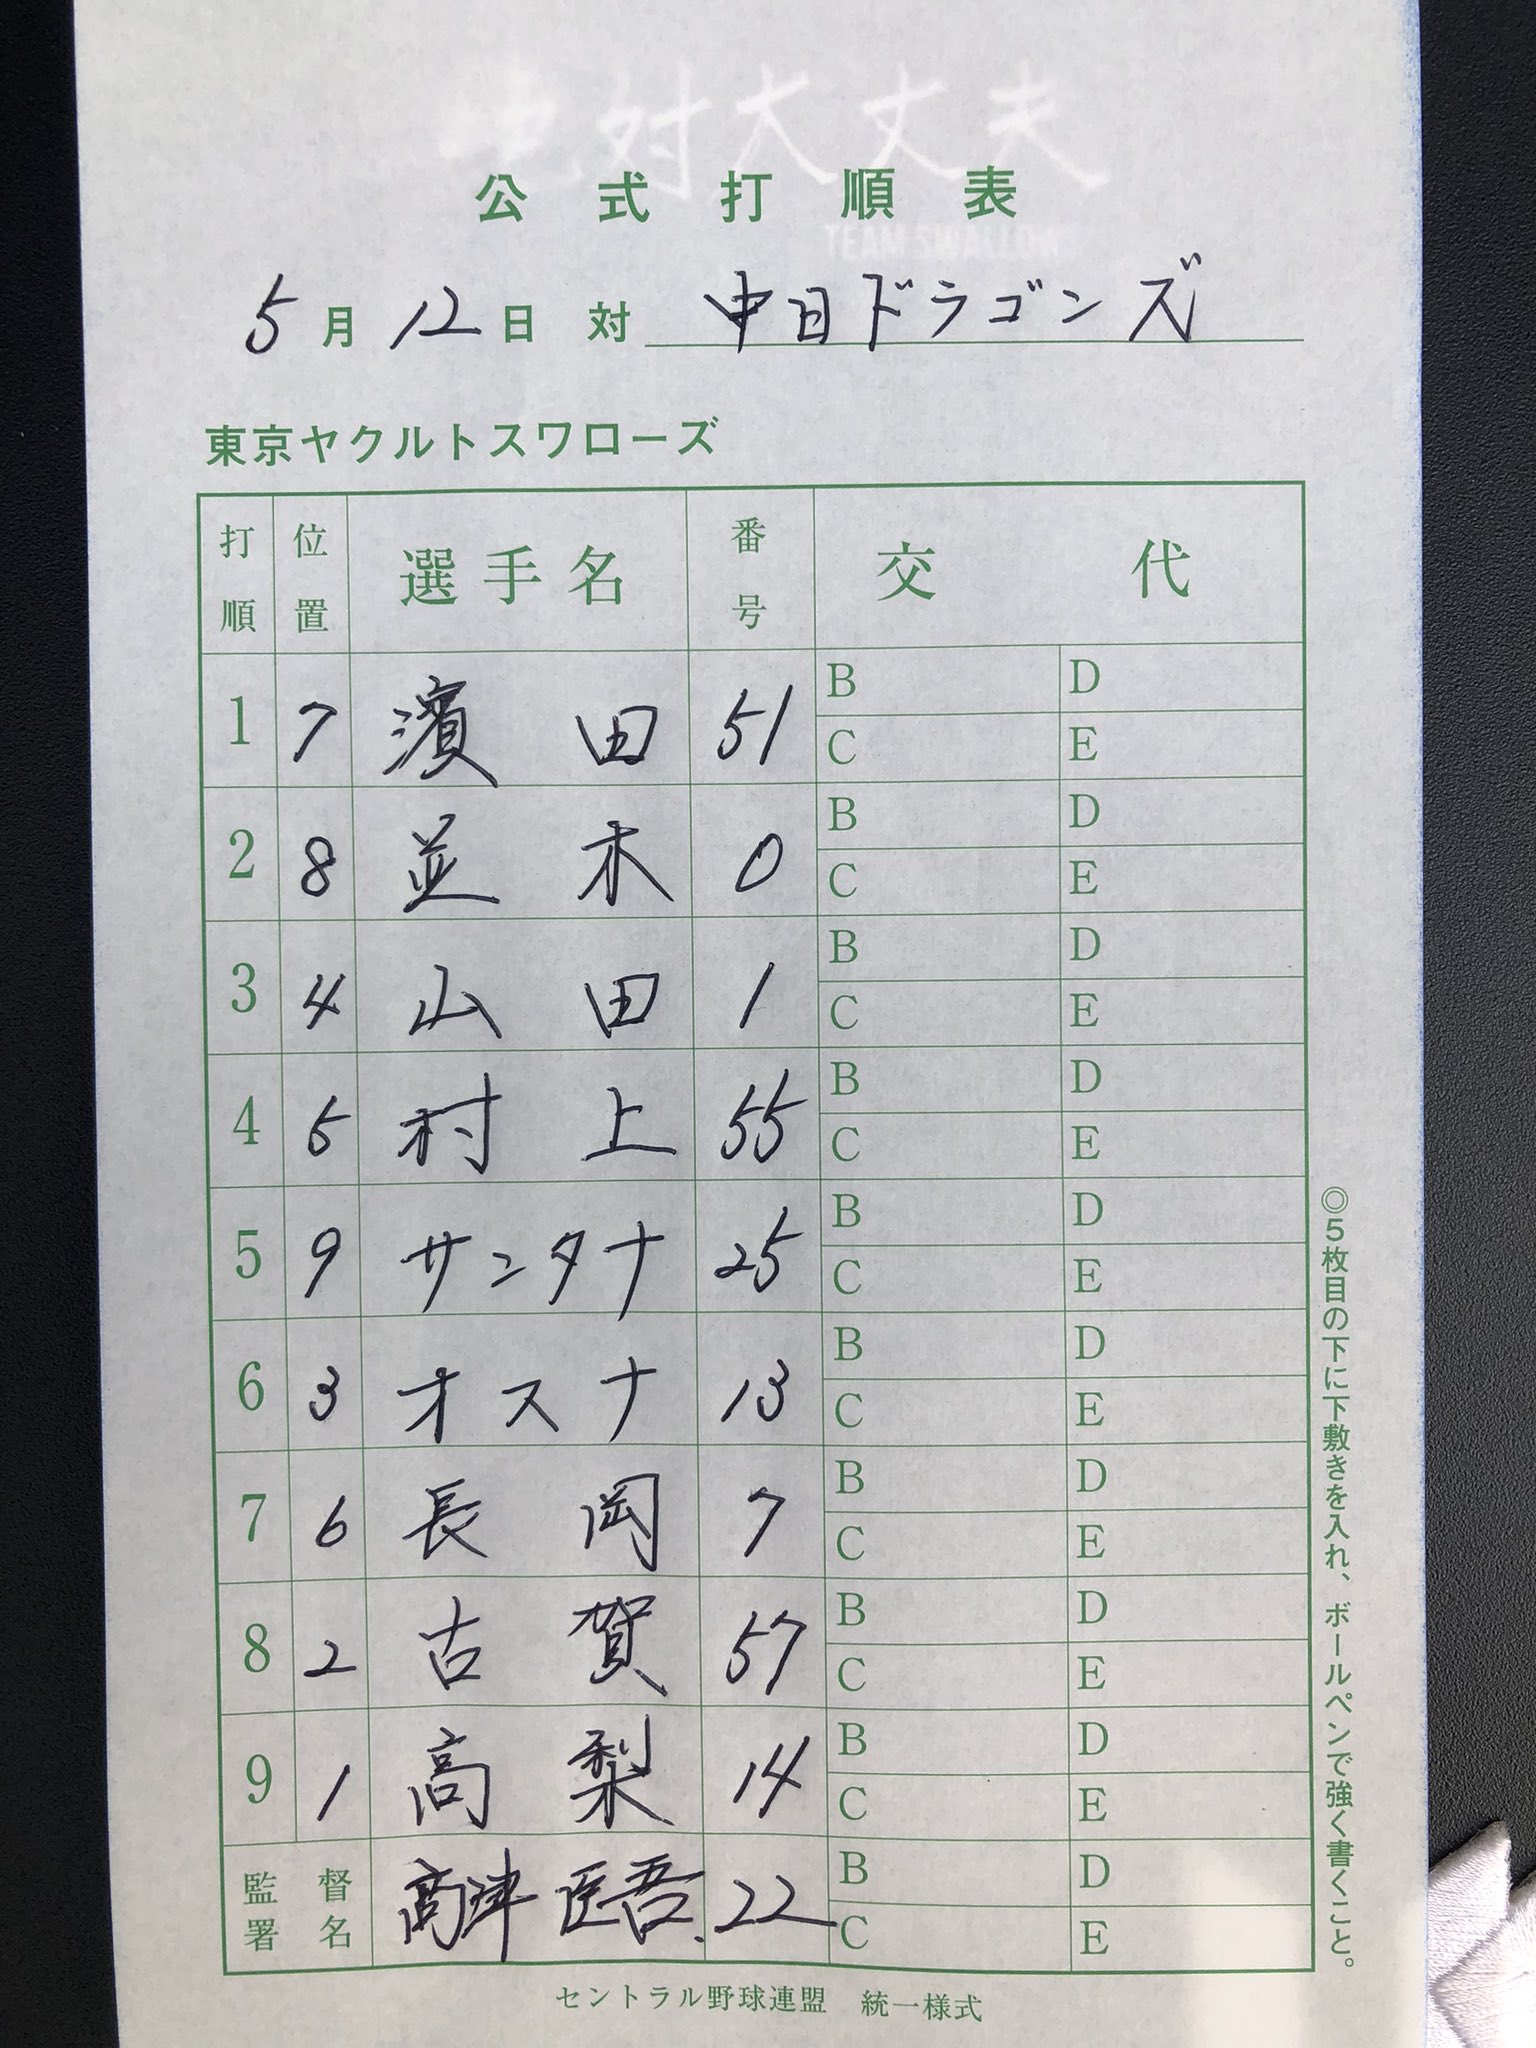 絶対大丈夫
公式打順表
TEAM SWALLOW
5月12日 対 中日ドラゴンズ
東京ヤクルトスワローズ
打順 位置 選手名 番号 交代
1 7 濱田 51 B D
C E
2 8 並木 0 B D
C E
3 4 山田 1 B D
C E
4 5 村上 55 B D
C E
5 9 サンタナ 25 B D
C E
6 3 オスナ 13 B D
C E
7 6 長岡 7 B D
C E
8 2 古賀 57 B D
C E
9 1 高梨 14 B D
C E
監督署名 高津臣吾 22 B D
C E
セントラル野球連盟 統一様式
◎5枚目の下に下敷きを入れ、ボールペンで強く書くこと。